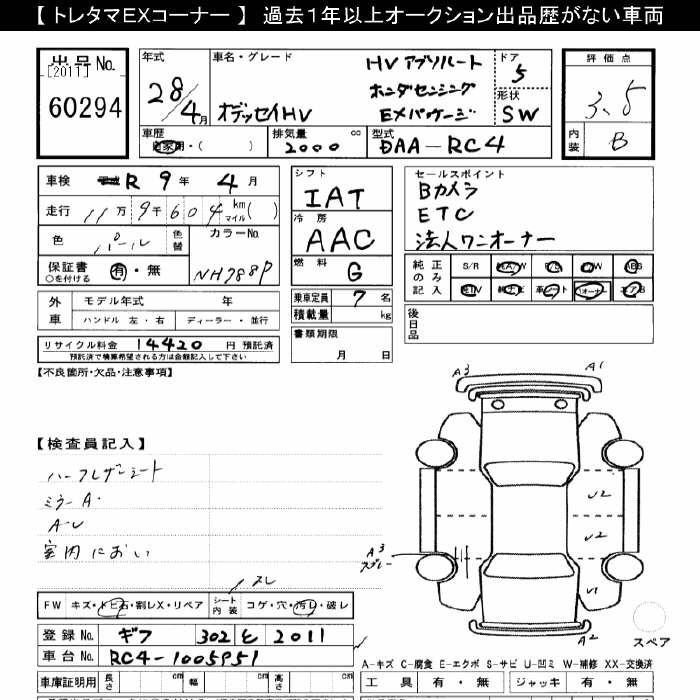 【 トレタマEXコーナー 】 過去1年以上オークション出品歴がない車両
出品No.
[2011]
60294
年式
28/4月
車名・グレード
オデッセイHV
HV アブソルート
ホンダセンシング
EXパッケージ
ドア
5
形状
SW
評価点
3.5
内装
B
車歴
自家用・( )
排気量
2000 cc
型式
DAA-RC4
車検
R 9年 4月
走行
11万9千604 km マイル( )
色
パール
色替
カラーNo.
NH788P
保証書
○を付ける
有・無
シフト
IAT
冷房
AAC
燃料
G
乗車定員 7名
積載量 kg
書類期限
月 日
セールスポイント
Bカメラ
ETC
法人ワンオーナー
純正のみ記入
S/R A/W P/S P/W ABS
TV ナビ 革シート 1オーナー エアB
後日品
外車
モデル年式 年
ハンドル 左・右 ディーラー・並行
リサイクル料金 14420 円 預託済
預託済で精算希望される方は金額記入して下さい
【不良箇所・欠品・注意事項】
【検査員記入】
ハーフレザーシート
ミラーA・
A・U
室内におい
スレ
FW キズ・トビ石・割レX・リペア
シート内装 コゲ・穴・汚レ・破レ
登録No. ギフ 302 と 2011
車台No. RC4-1005951
車庫証明用 長さ cm 幅 cm 高さ cm
A3
A1
U2
U2
U1
A3
スプレー
A2
スペア
A-キズ C-腐食 E-エクボ S-サビ U-凹ミ W-補修 XX-交換済
工具 有・無 ジャッキ 有・無